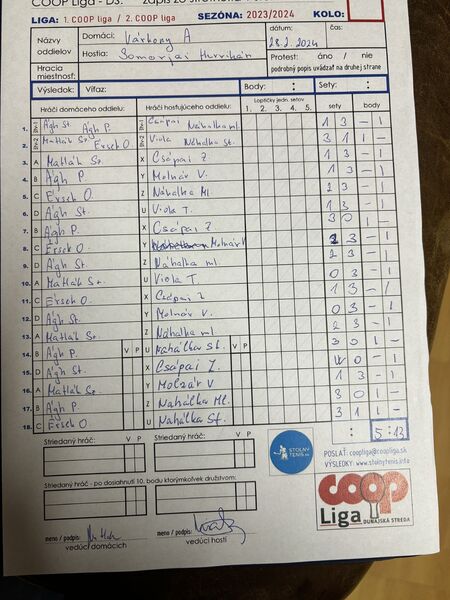 COOP Liga - DS. Zápis zo stolnoten
LIGA: 1.COOP liga / 2. COOP liga SEZÓNA: 2023/2024 KOLO:
Názvy oddielov Domáci: Várkony A dátum: 28.2.2024 čas:
Hostia: Somorjai Hurrikán Protest: áno / nie
Hracia miestnosť: podrobný popis uvádzať na druhej strane
Výsledok: Víťaz: Body: : Sety: :
Hráči domáceho oddielu: Hráči hosťujúceho oddielu: Loptičky jedn. setov 1. 2. 3. 4. 5. sety body
1. Ágh St. Ágh P. Csápai Náhalka ml. 1 3 - 1
2. Matlák Sz. Érsek O. Viola Náhalka St. 3 1 1 -
3. A Matlák Sz. X Csápai Z 1 3 - 1
4. B Ágh P. Y Molnár V. 1 3 - 1
5. C Érsek O. Z Náhalka Ml. 2 3 - 1
6. D Ágh St. U Viola T. 1 3 - 1
7. B Ágh P. X Csápai Z 3 0 1 -
8. C Érsek O. Y Molnár V 2 3 - 1
9. D Ágh St. Z Náhalka ml. 2 3 - 1
10. A Matlák Sz. U Viola T. 0 3 - 1
11. C Érsek O. X Csápai Z 1 3 - 1
12. D Ágh St. Y Molnár V. 0 3 - 1
13. A Matlák Sz. Z Náhalka ml. 2 3 - 1
14. B Ágh P. V P U Náhálka St. 3 0 1 -
15. D Ágh St. X Csápai Z. WO - 1
16. A Matlák Sz. Y Molnár V 1 3 - 1
17. B Ágh P. Z Náhálka Ml. 3 0 1 -
18. C Érsek O. U Náhálka St. 3 1 1 -
: 5:13
Striedaný hráč: V P Striedaný hráč: V P
STOLNÝ TENIS
POSLAŤ: coopliga@coopliga.sk
VÝSLEDKY: www.stolnytenis.info
Striedaný hráč - po dosiahnutí 10. bodu ktorýmkoľvek družstvom:
V P V P
COOP Liga
DUNAJSKÁ STREDA
meno / podpis: meno / podpis:
vedúci domácich vedúci hostí